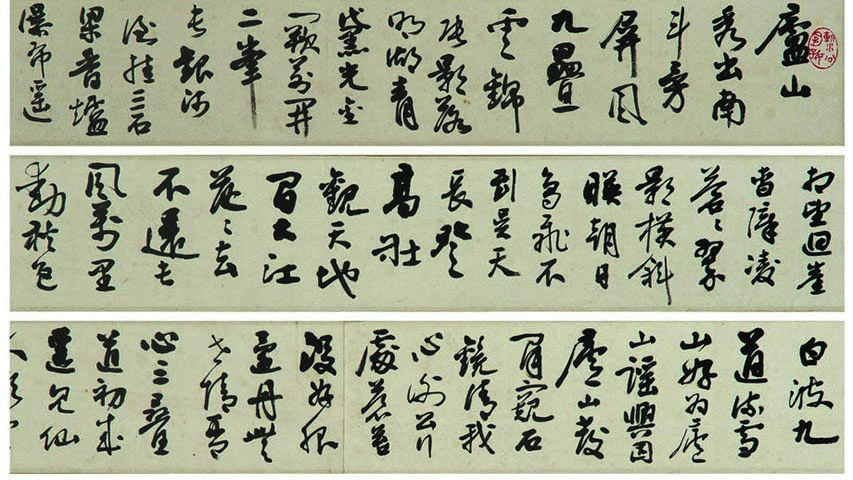 廬山
秀出南
斗旁
屏風
九疊
雲錦
張影落
明湖青
黛光金
闕前開
二峯
長銀河
倒挂三石
梁香爐
瀑布遙
相望迴崖
沓障凌
蒼々翠
影橫斜
暎朝日
鳥飛不
到吳天
長登
高壯
觀天地
間大江
茫々去
不還長
風萬里
動秋色
白波九
道流雪
山好為廬
山謠興因
廬山發
閒窺石
鏡清我
心謝公行
處蒼苔
沒服
丹
世情琴
心三疊
道初成
遙見仙